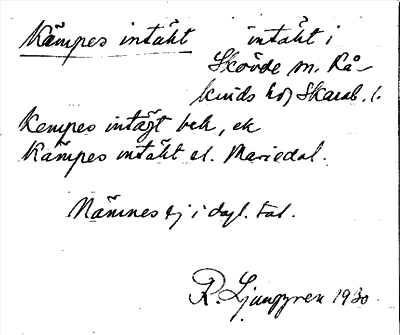 Kämpes intäkt intäkt i
Skövde m. Kå-
kinds hd Skarab. l.
Kempes intägt bek, ek
Kämpes intäkt el. Mariedal.
Nämnes ej i dagl. tal.
R. Ljunggren 1930.